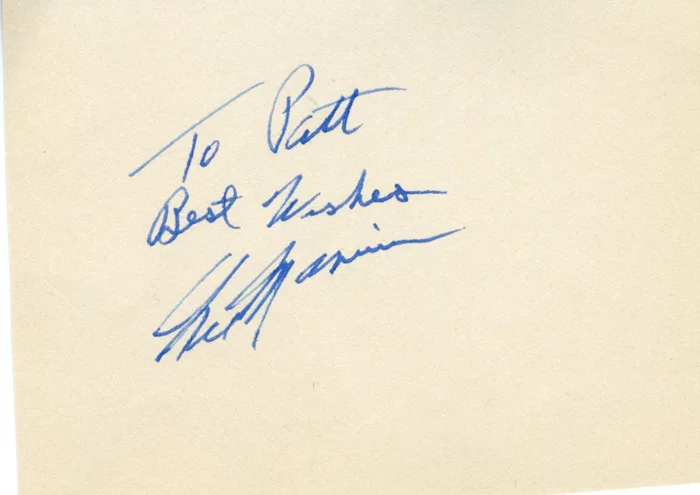 To Patt
Best Wishes